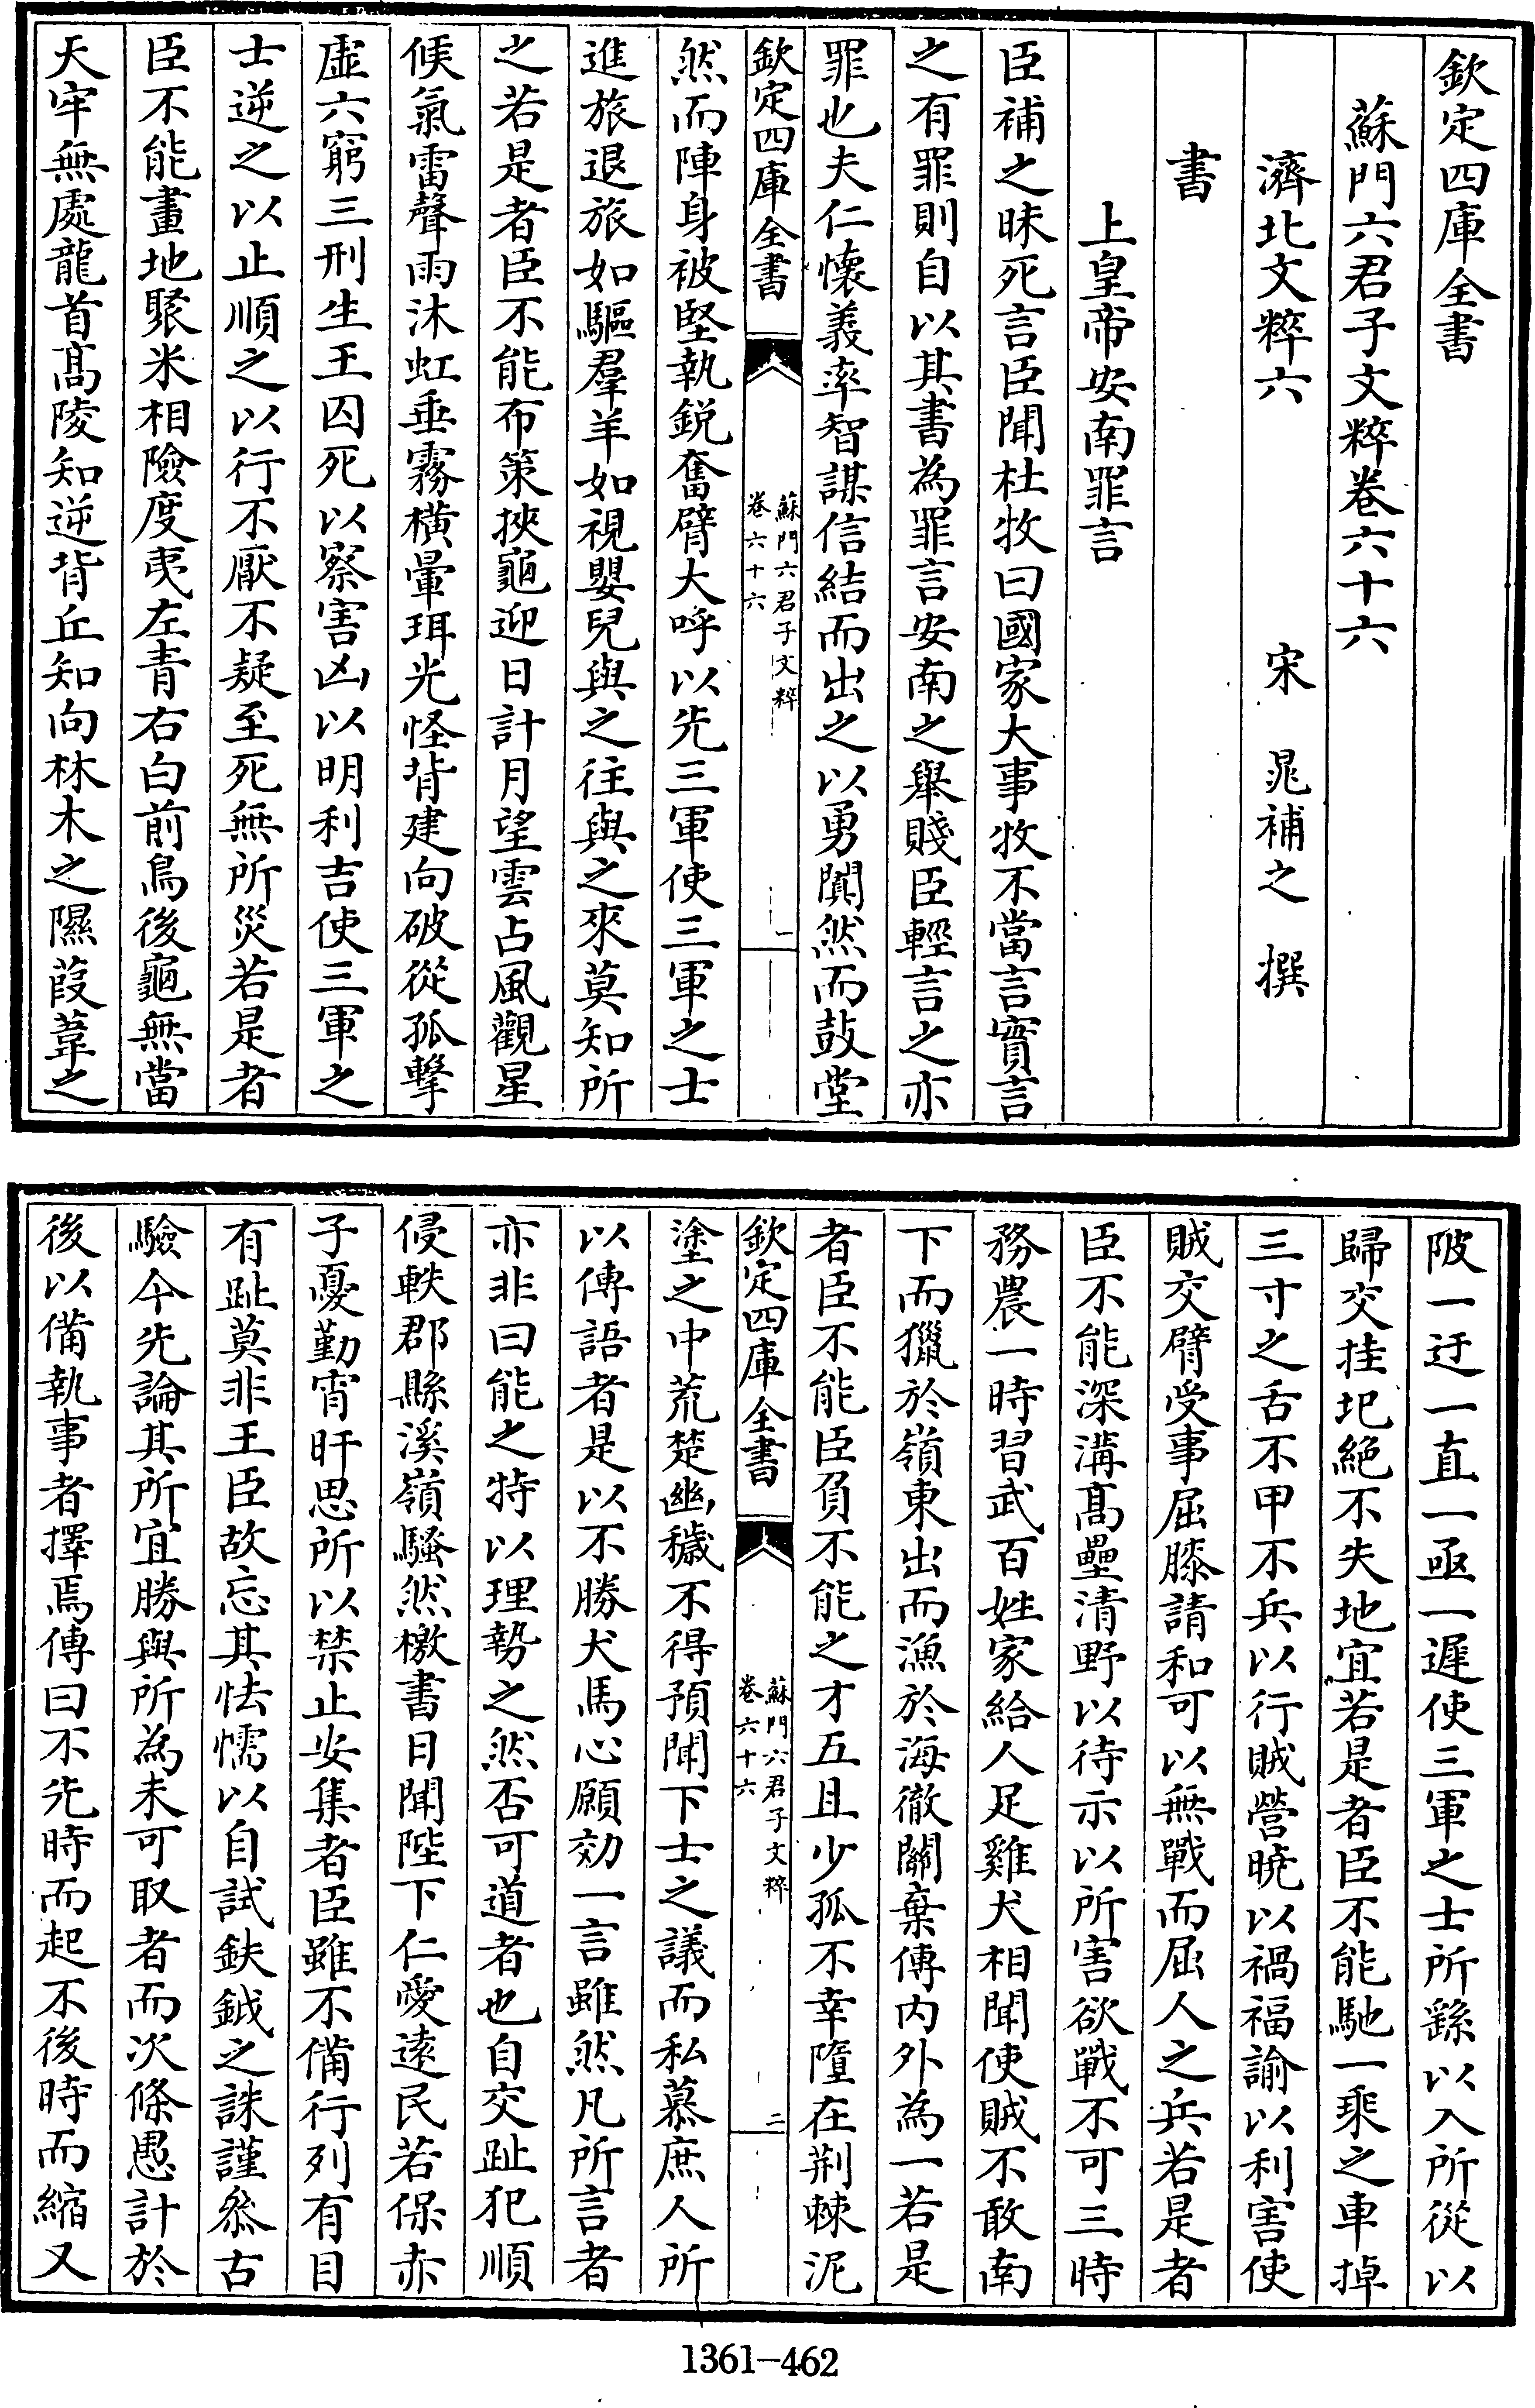 欽定四庫全書
蘇門六君子文粹卷六十六
濟北文粹六 宋 晁補之 撰
書
上皇帝安南罪言
臣補之昧死言臣聞杜牧曰國家大事牧不當言實言
之有罪則自以其書為罪言安南之舉賤臣輕言之亦
罪也夫仁懷義率智謀信結而出之以勇闐然而鼓堂
欽定四庫全書
蘇門六君子文粹
卷六十六
一
然而陣身被堅執鋭奮臂大呼以先三軍使三軍之士
進旅退旅如驅羣羊如視嬰兒與之往與之來莫知所
之若是者臣不能布策挾龜迎日計月望雲占風觀星
候氣雷聲雨沐虹垂霧橫暈珥光怪背建向破從孤擊
虛六窮三刑生王囚死以察害凶以明利吉使三軍之
士逆之以止順之以行不厭不疑至死無所災若是者
臣不能畫地聚米相險度夷左青右白前鳥後龜無當
天牢無處龍首髙陵知逆背丘知向林木之隰葭葦之
陂一迂一直一亟一遲使三軍之士所繇以入所從以
歸交挂圯絶不失地宜若是者臣不能馳一乘之車掉
三寸之舌不甲不兵以行賊營曉以禍福諭以利害使
賊交臂受事屈膝請和可以無戰而屈人之兵若是者
臣不能深溝髙壘清野以待示以所害欲戰不可三時
務農一時習武百姓家給人足雞犬相聞使賊不敢南
下而獵於嶺東出而漁於海徹關棄傳内外為一若是
者臣不能臣負不能之才五且少孤不幸墮在荆棘泥
欽定四庫全書
蘇門六君子文粹
卷六十六
二
塗之中荒楚幽穢不得預聞下士之議而私慕庶人所
以傳語者是以不勝犬馬心願効一言雖然凡所言者
亦非曰能之特以理勢之然否可道者也自交趾犯順
侵軼郡縣溪嶺騷然檄書日聞陛下仁愛逺民若保赤
子憂勤宵旰思所以禁止安集者臣雖不備行列有目
有趾莫非王臣故忘其怯懦以自試鈇鉞之誅謹叅古
驗今先論其所宜勝與所為未可取者而次條愚計於
後以備執事者擇焉傳曰不先時而起不後時而縮又
1361-462